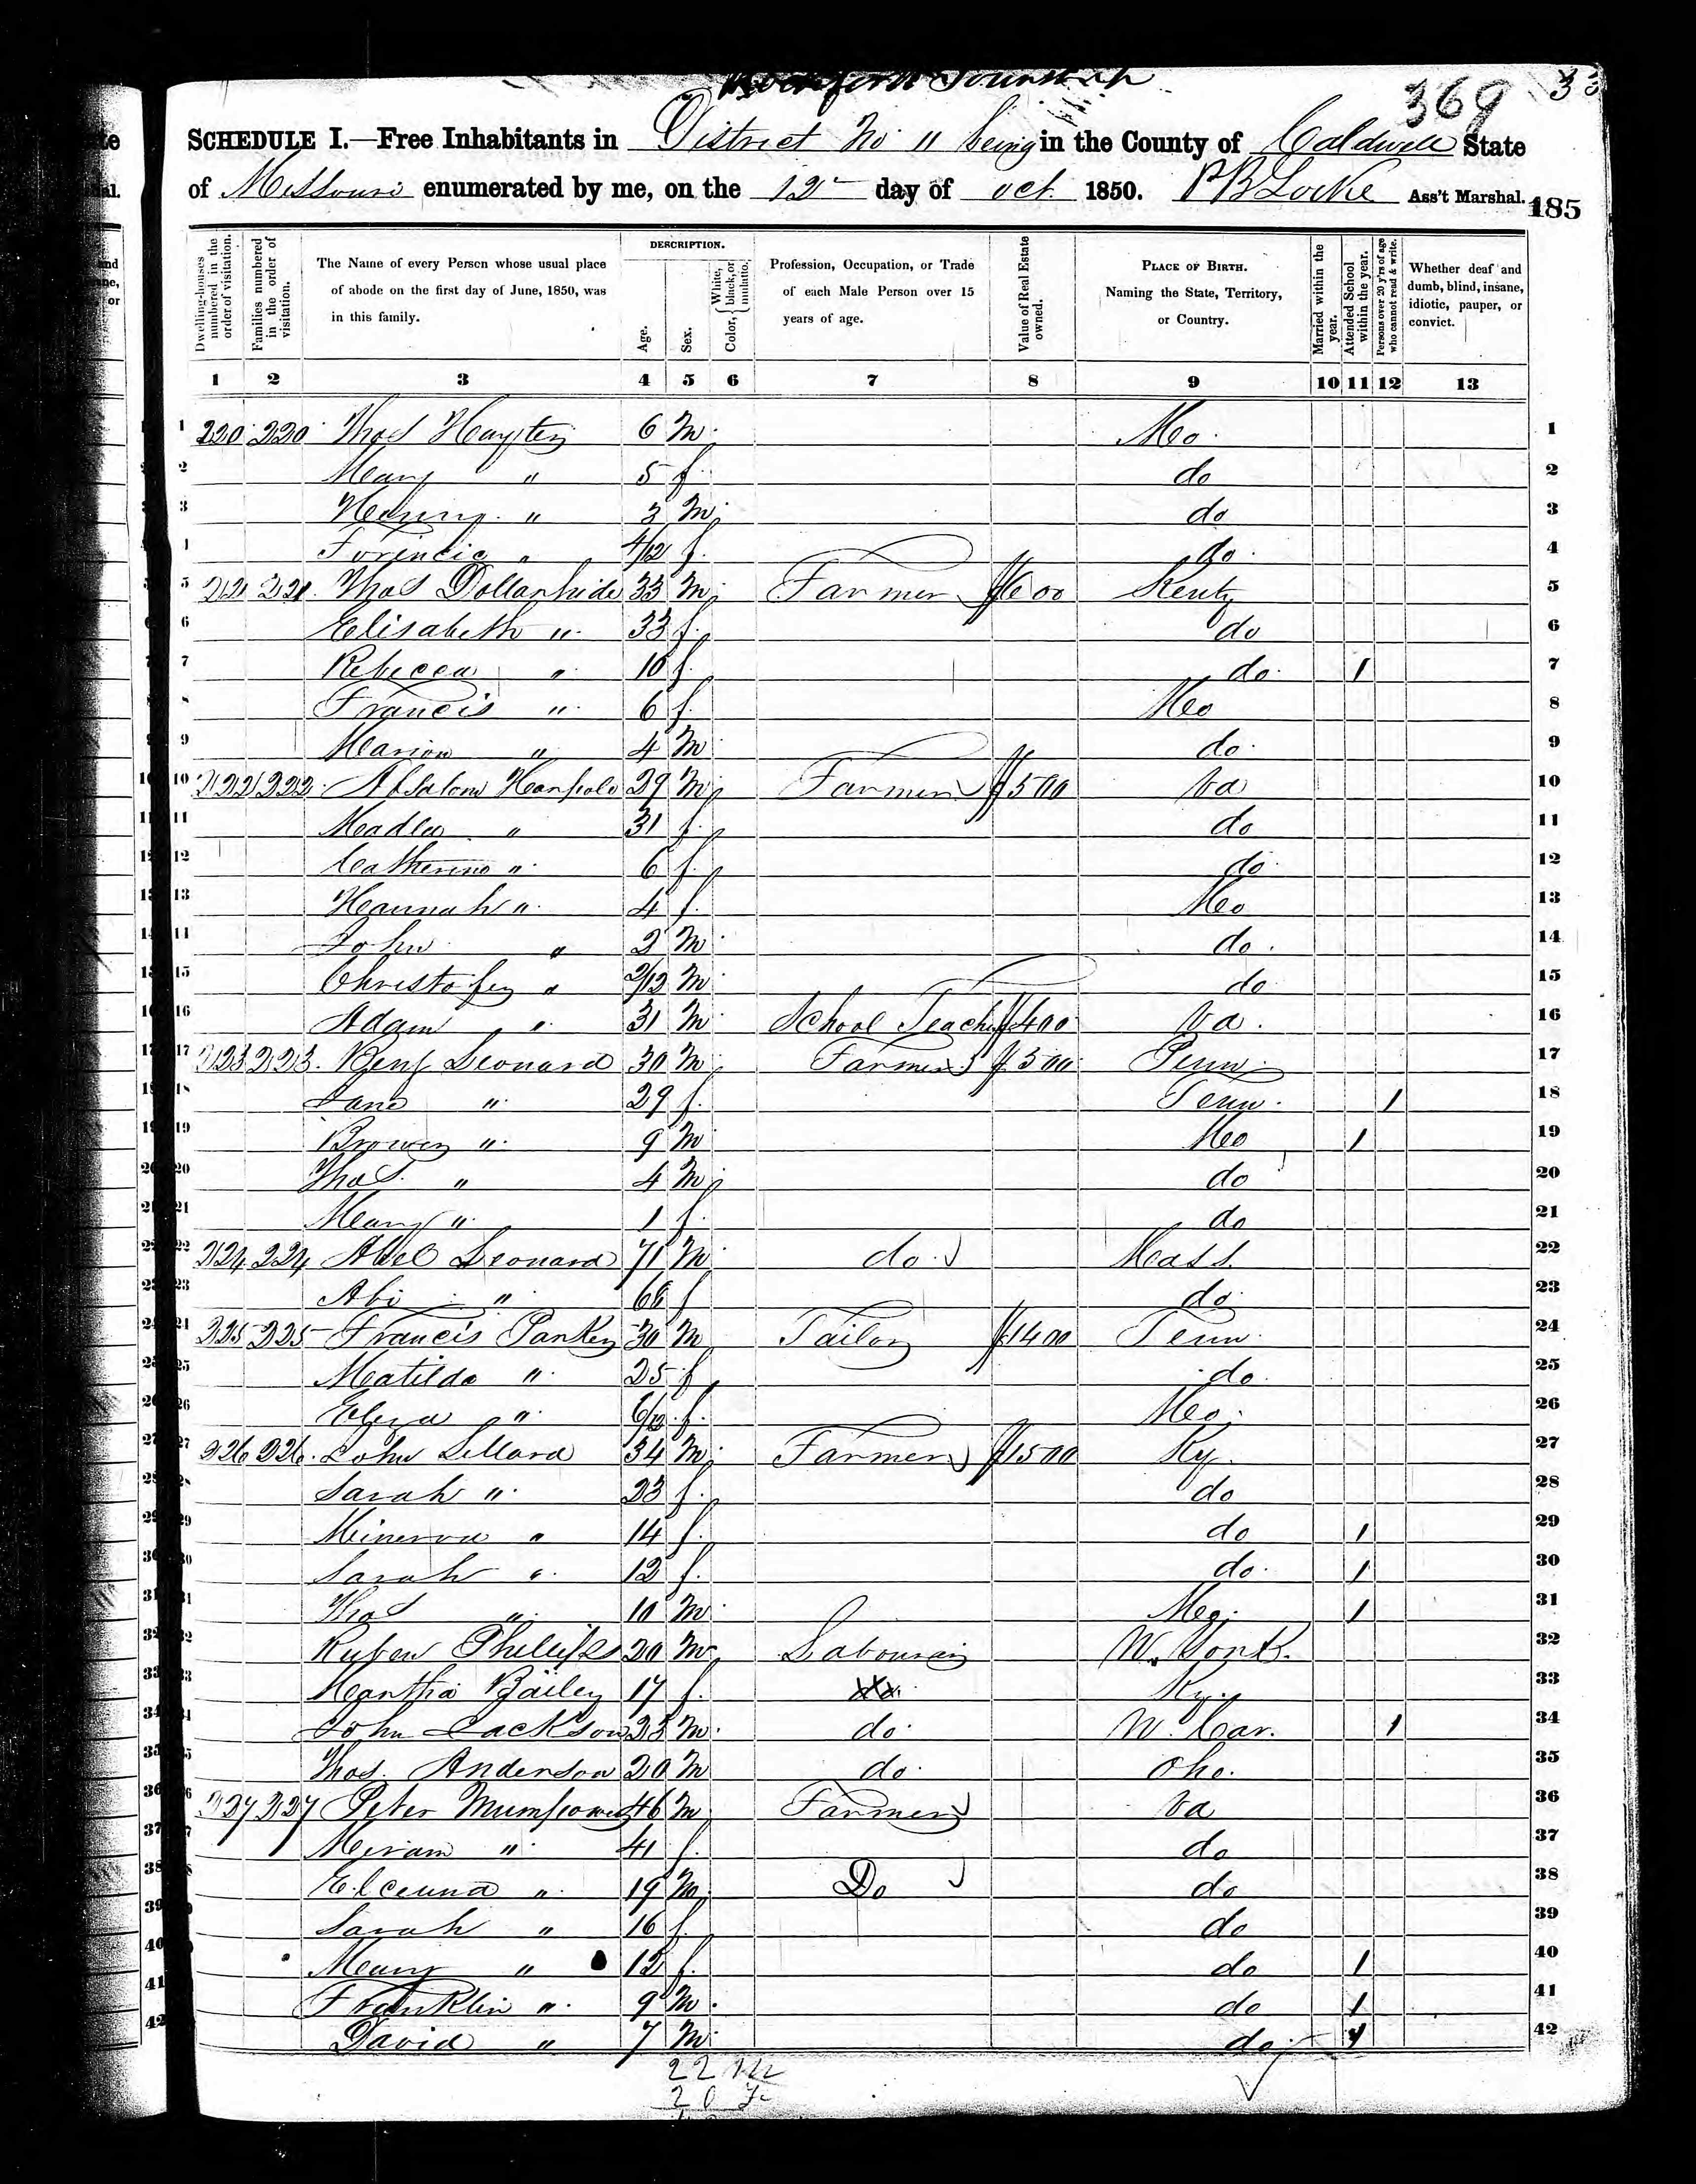 Rockford Township
369
33
SCHEDULE I.—Free Inhabitants in District No " being in the County of Caldwell State
of Missouri enumerated by me, on the 12 day of Oct 1850. P B Locke Ass't Marshal.
185
DESCRIPTION.
Dwelling-houses numbered in the order of visitation.
Families numbered in the order of visitation.
The Name of every Person whose usual place of abode on the first day of June, 1850, was in this family.
Age.
Sex.
Color, White, black, or mulatto.
Profession, Occupation, or Trade of each Male Person over 15 years of age.
Value of Real Estate owned.
PLACE OF BIRTH. Naming the State, Territory, or Country.
Married within the year.
Attended School within the year.
Persons over 20 y'rs of age who cannot read & write.
Whether deaf and dumb, blind, insane, idiotic, pauper, or convict.
1 2 3 4 5 6 7 8 9 10 11 12 13
1 220 220 Thos 6 M Mo. 1
2 Mary " 5 f do 2
3 " 3 M do 3
4/12 f do 4
5 221 221 Thos Dollarhide 33 M Farmer $600 Kenty 5
6 Elisabeth " 33 f do 6
7 Rebecca " 10 f do 1 7
8 Francis " 6 f Mo 8
9 Marion " 4 M do 9
10 222 222 Absalom 29 M Farmer $500 Va 10
11 " 31 f do 11
12 Catherine " 6 f do 12
13 Hannah " 4 f Mo 13
14 John " 2 M do 14
15 Christofer " 2/12 M do 15
16 Adam " 31 M School Teacher $400 Va 16
17 223 223 Benj Leonard 30 M Farmer $300 Penn 17
18 Jane " 29 f Tenn 1 18
19 " 9 M Mo 1 19
20 Thos " 4 M do 20
21 Mary " 1 f do 21
22 224 224 Abel Leonard 71 M do Mass. 22
23 Abi " 66 f do 23
24 225 225 Francis 30 M Tailor $1400 Tenn 24
25 Matilda " 25 f do 25
26 " 6/12 f Mo 26
27 226 226 John Lillard 34 M Farmer $1500 Ky 27
28 Sarah " 23 f do 28
29 Minerva " 14 f do 1 29
30 Sarah " 12 f do 1 30
31 Thos " 10 M Mo 1 31
32 Ruben Phillips 20 M N. York. 32
33 Martha Bailey 17 f Ky. 33
34 John Jackson 23 M do N. Car. 1 34
35 Thos. Anderson 20 M do Oho. 35
36 227 227 Peter Mumpower 46 M Farmer Va 36
37 " 41 f do 37
38 " 19 M Do do 38
39 Sarah " 16 f do 39
40 Mary " 12 f do 1 40
41 Franklin " 9 M do 1 41
42 David " 7 M do 1 42
22 M
20 F